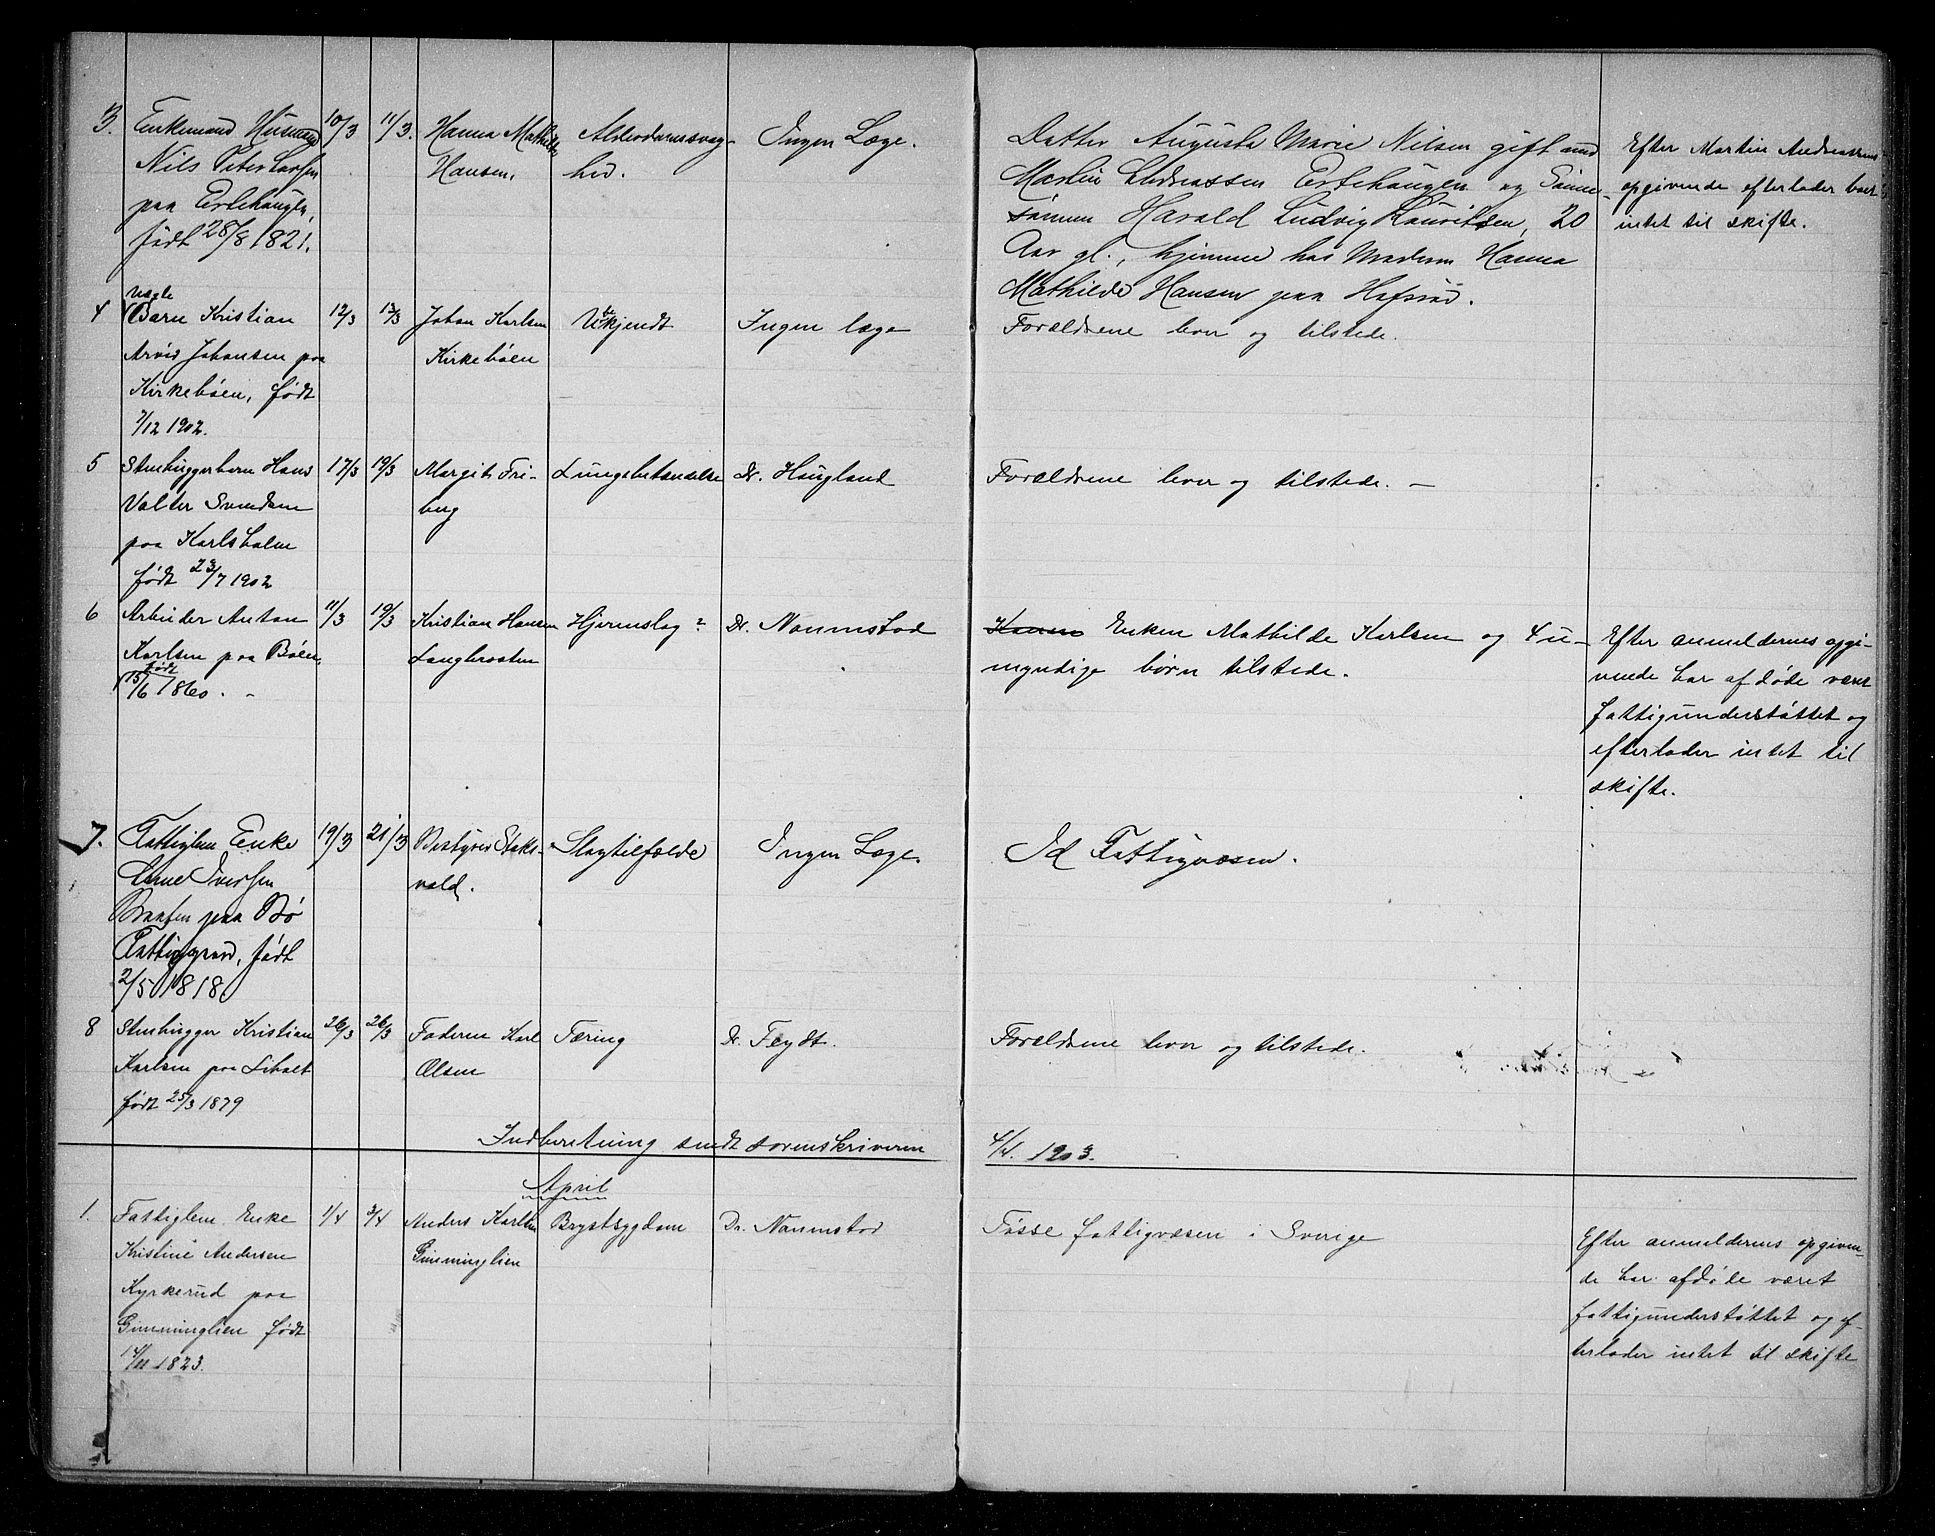 3. Enkemand Husmand 10/3 11/3. Hanna Mathilde Alderdomssvag- Ingen Læge. Datter Augusta Marie Nilsen gift med Efter Martin Andreassens
Nils Peter Larsen Hansen. hed. Martin Andreassen Ertehaugen og Sønne- opgivende efterlader
paa Ertehaugen, sønnen Harald Ludvig Lauritsen, 20 intet til skifte.
født 28/8 1821. Aar gl., hjemme hos Moderen Hanna
Mathilde Hansen paa Hafsrød.
4 Uægte Barn Kristian 12/3 13/3 Johan Karlsen Ukjendt Ingen læge Forældrene lever og tilstede.
Arvid Johansen paa Kirkebøen
Kirkebøen, født
7/12 1902.
5 Stenhuggerbarn Hans 17/3 19/3 Margit Fri- Lungebetændelse Dr. Haugland Forældrene lever og tilstede. –
Valter Svendsen berg
paa Karlsholm
født 23/7 1902
6 Arbeider Anton 11/3 19/3 Kristian Hansen Hjerneslag? Dr. Naumstad Enken Mathilde Karlsen og 4 u- Efter anmeldernes opgi-
Karlsen paa Bøen, Langbraaten myndige børn tilstede. vende har afdøde været
født 15/6 1860. - fattigunderstøttet og
efterlader intet til
skifte.
7. Fattiglem Enke 19/3 21/3 Bestyrer Stoks- Slagtilfælde Ingen Læge. Id Fattigvæsen.
Iversen vold.
paa Bø
Fattiggaard, født
2/5 1818.
8 Stenhugger Kristian 26/3 26/3 Faderen Karl Tæring Dr. Feydt. Forældrene lever og tilstede.
Karlsen paa Liholt Olsen
født 25/3 1879
Indberetning sendt sorenskriveren 4/4. 1903.
April
1. Fattiglem Enke 1/4 3/4 Anders Karlsen Brystsygdom Dr. Naumstad Tøsse fattigvæsen i Sverige Efter anmelderens opgiven-
Kristine Andersen Gimminglien de har afdøde været
Kyrkerud paa fattigunderstøttet og ef-
Gimminglien født terlader intet til skifte
14/11 1823.